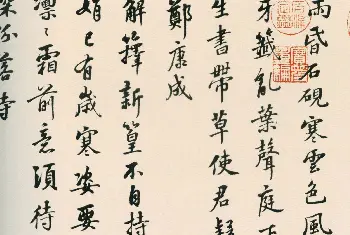 雨昏石硯寒雲色風
牙籤亂葉聲庭下
生書帶草使君疑
鄭康成
解籜新篁不自持
娟已有歲寒姿要
凜〻霜前意須待